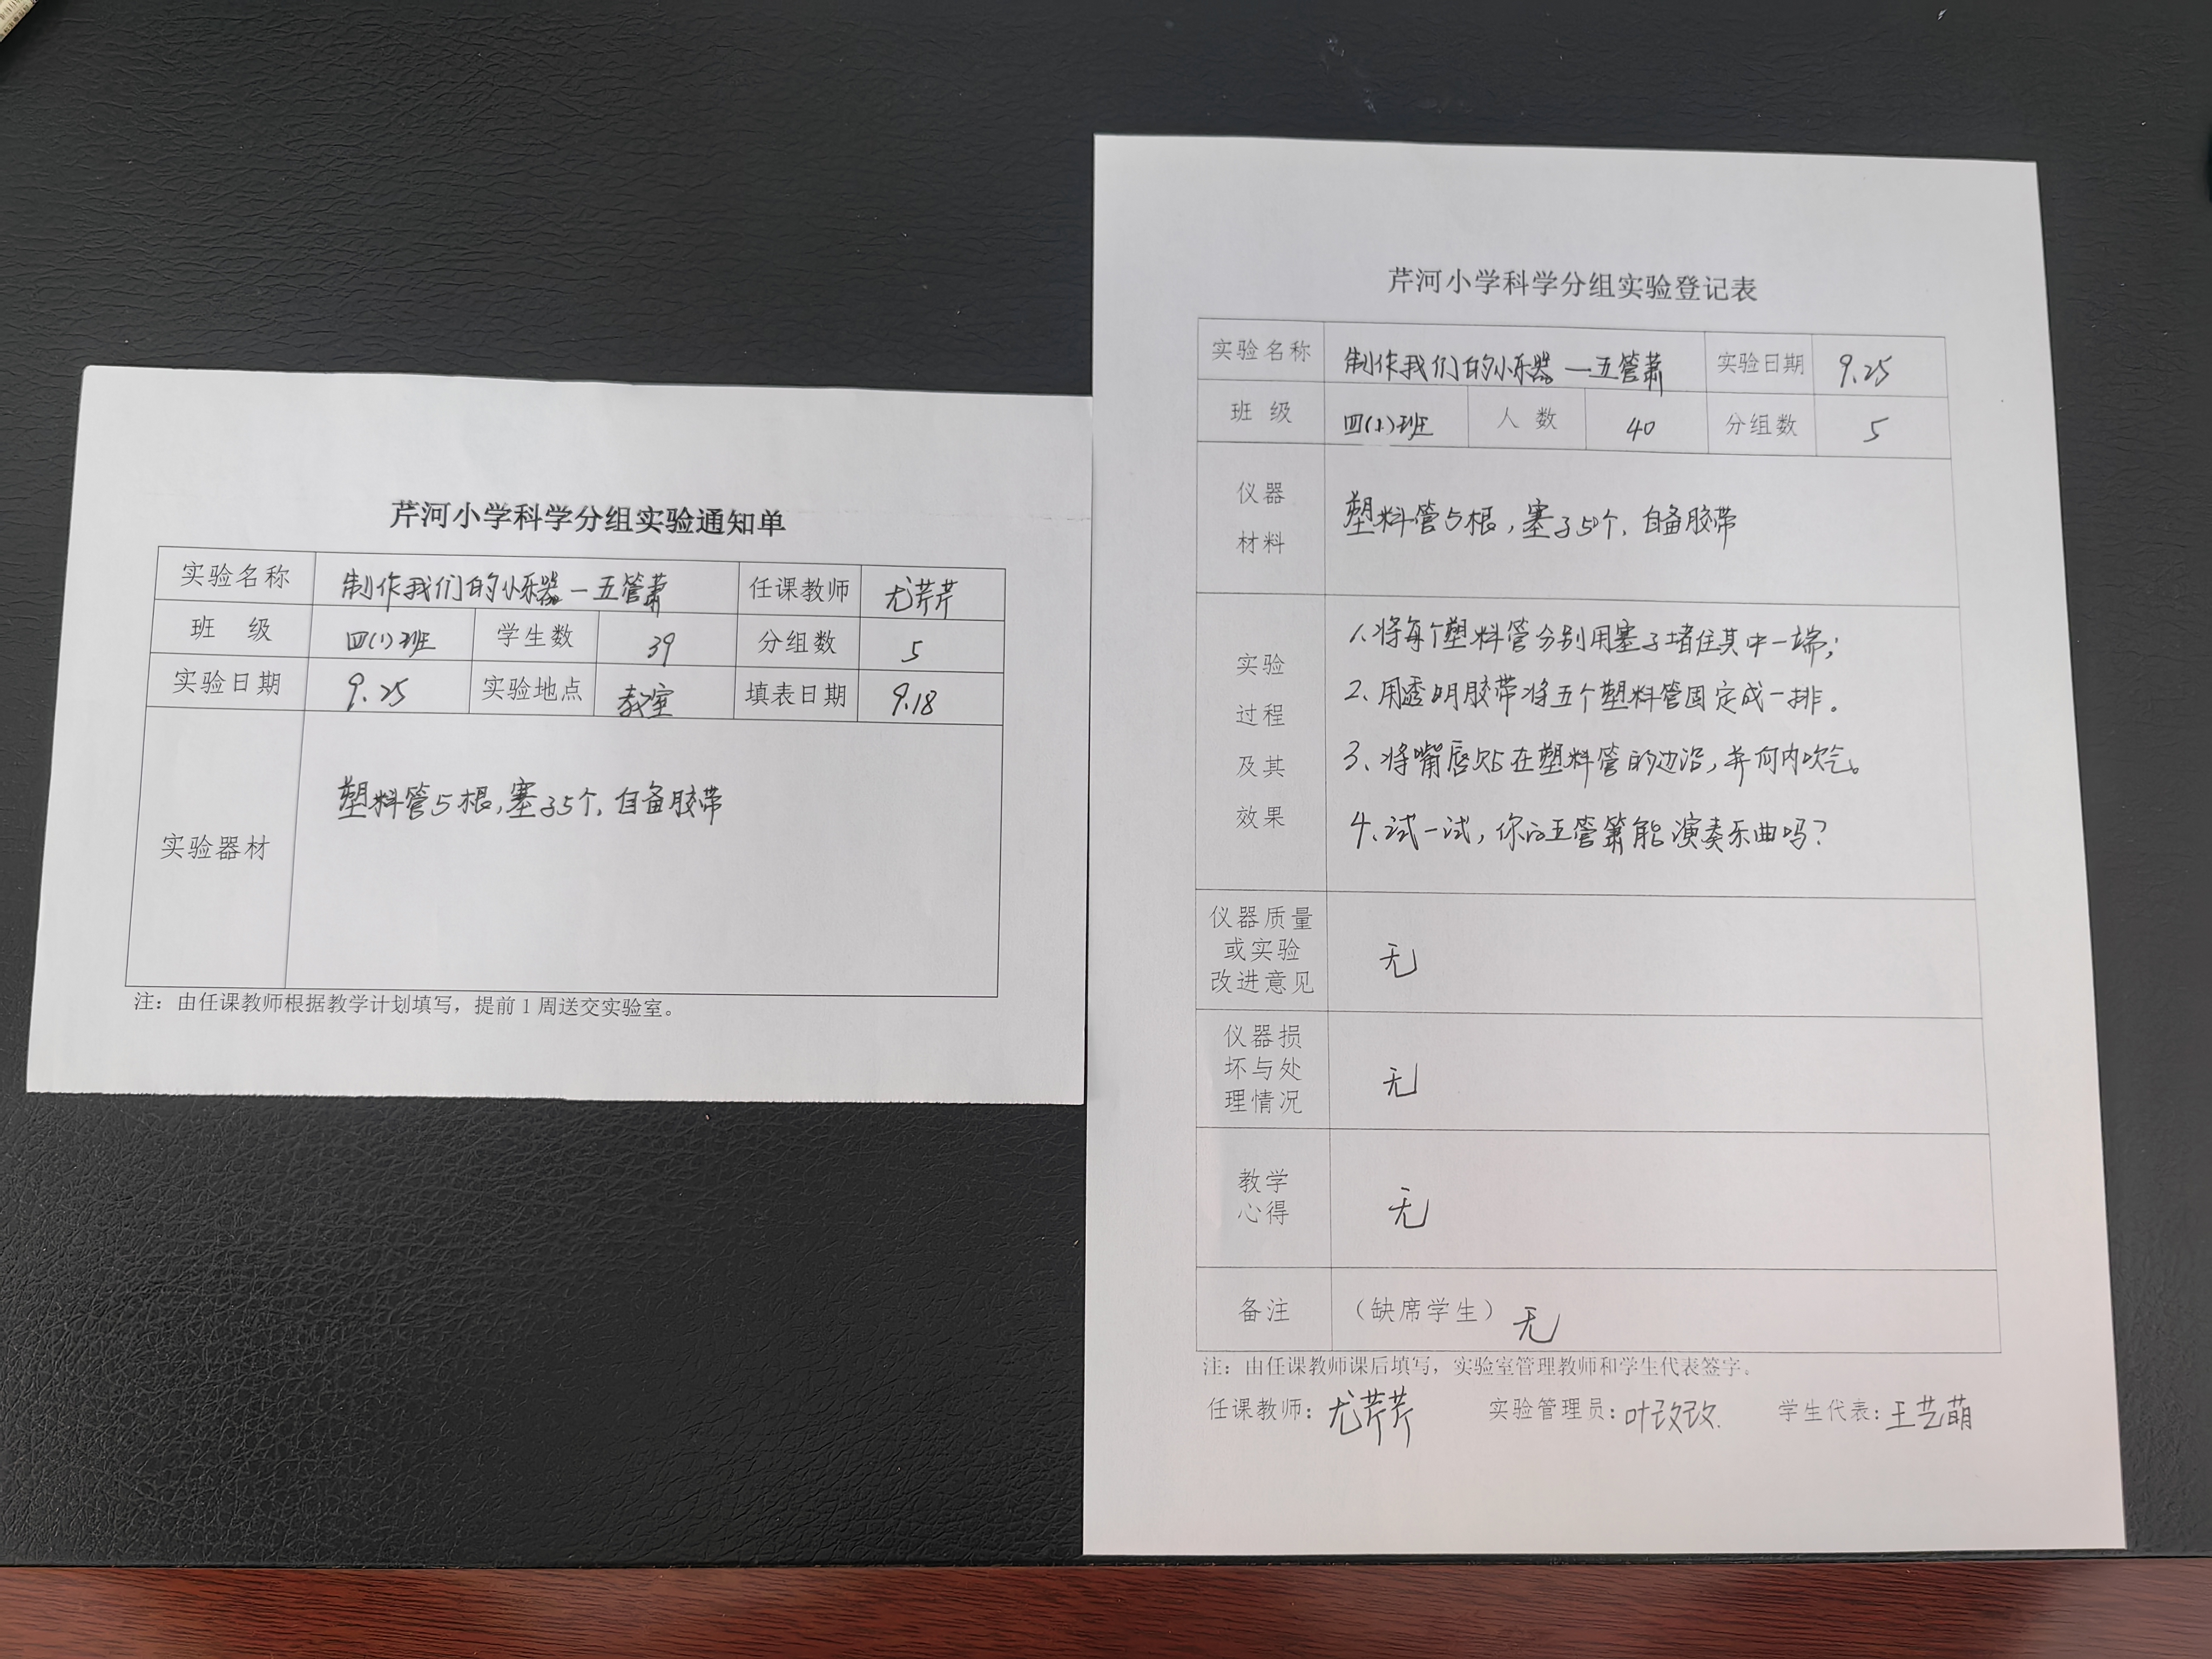 芹河小学科学分组实验通知单
实验名称 制作我们的小乐器—五管萧 任课教师 尤芹芹
班 级 四(1)班 学生数 39 分组数 5
实验日期 9.25 实验地点 教室 填表日期 9.18
实验器材 塑料管5根,塞子5个,自备胶带
注：由任课教师根据教学计划填写，提前1周送交实验室。
芹河小学科学分组实验登记表
实验名称 制作我们的小乐器—五管萧 实验日期 9.25
班 级 四(1)班 人 数 40 分组数 5
仪器
材料
塑料管5根,塞子5个,自备胶带
实验
过程
及其
效果
1.将每个塑料管分别用塞子堵住其中一端;
2.用透明胶带将五个塑料管固定成一排。
3、将嘴唇贴在塑料管的边沿,并向内吹气。
4、试一试,你的五管箫能演奏乐曲吗?
仪器质量
或实验
改进意见
无
仪器损
坏与处
理情况
无
教学
心得
无
备注 （缺席学生）无
注：由任课教师课后填写，实验室管理教师和学生代表签字。
任课教师：尤芹芹 实验管理员：叶改改. 学生代表：王艺萌